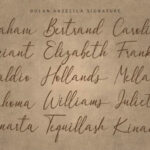 DULAN ANZELICA SIGNATURE
aham Bertrand Carolin
riant Elizabeth Frank
aldio Hollands Milla
homa Williams Juliet
marta Tequillash Kina